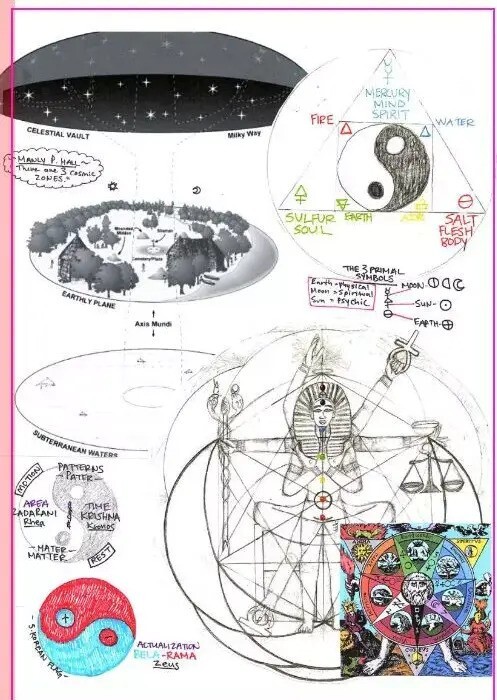 CELESTIAL VAULT
Milky Way
MANLY P. HALL
There are 3 cosmic
ZONES.
EARTHLY PLANE
Axis Mundi
SUBTERRANEAN WATERS
MERCURY
MIND
SPIRIT
FIRE
WATER
SULFUR
SOUL
EARTH
AIR
SALT
FLESH
BODY
THE 3 PRIMAL
SYMBOLS
Earth = Physical
Moon = Spiritual
Sun = Psychic
MOON-
SUN-
EARTH-
MOTION
PATTERNS
- PATER -
AREA
ZADARANI
Rhea
TIME
KRISHNA
Kronos
- MATER -
MATTER
REST
S. KOREAN FLAG
ACTUALIZATION
BELA-RAMA
Zeus